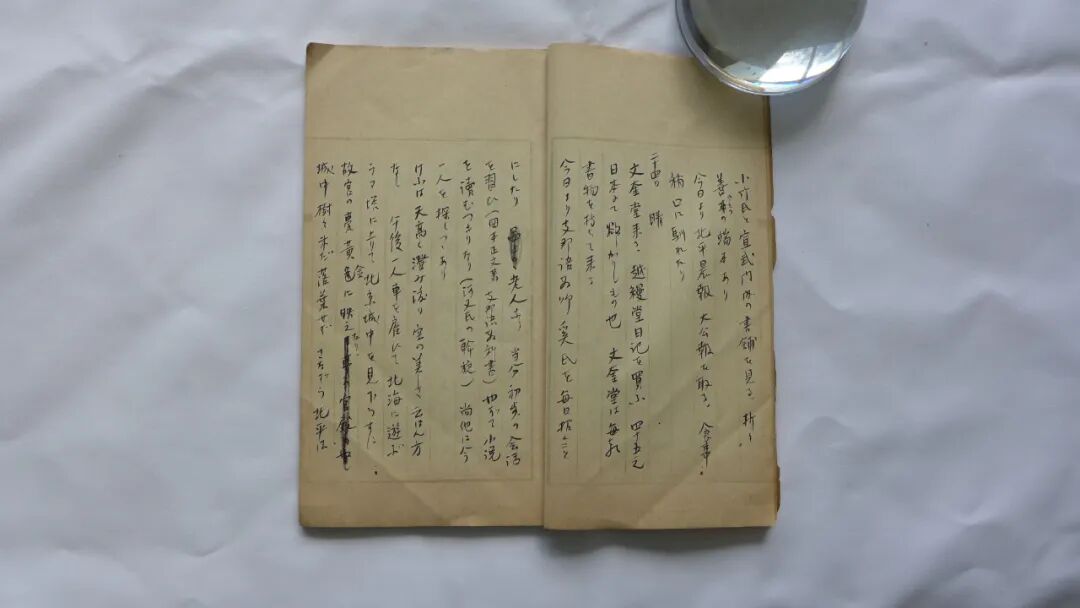 小竹氏と宣武門内の書舗を見る、
善本の端本あり
今日より北平晨報 大公報を取る、食事
稍口に馴れたり
二十四日 晴
文奎堂来る、越縵堂日記を買ふ 四十五元
日本にて欲しかりしもの也 文奎堂は毎
書物を持して来る
今日より支那語教師奚氏を毎日招くこと
にしたり 老人なり 当分初歩の会話
を習ひ やがて小説
を読むつもりなり 尚他に今
一人を探しつゝあり
けふは天高く澄み渡り空の美しさ云はん方
なし 午後一人車を雇ひて北海に遊ぶ
ラマ塔に上りて北京城中を見おろす、
故宮の甍黄金色に映え
城中樹々未だ落葉せず さながら北平は